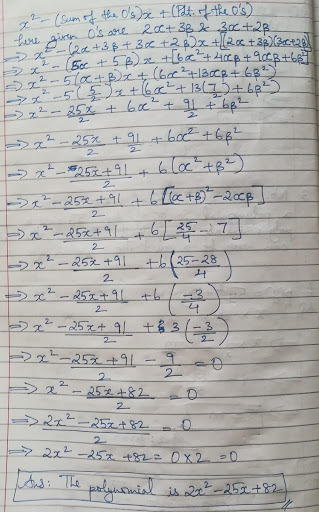 x² - (Sum of the O's)x + (Pdt. of the O's)
here given O's are 2α + 3β & 3α + 2β
⇒ x² - (2α + 3β + 3α + 2β)x + [(2α + 3β)(3α + 2β)]
⇒ x² - (5α + 5β)x + [6α² + 4αβ + 9αβ + 6β²]
⇒ x² - 5(α + β)x + (6α² + 13αβ + 6β²)
⇒ x² - 5(5/2)x + (6α² + 13(7/2) + 6β²)
⇒ x² - 25x/2 + 6α² + 91/2 + 6β²
⇒ x² - 25x/2 + 91/2 + 6α² + 6β²
⇒ x² - 25x + 91/2 + 6(α² + β²)
⇒ x² - 25x + 91/2 + 6[(α + β)² - 2αβ]
⇒ x² - 25x + 91/2 + 6[25/4 - 7]
⇒ x² - 25x + 91/2 + 6(25 - 28/4)
⇒ x² - 25x + 91/2 + 6(-3/4)
⇒ x² - 25x + 91/2 + 3(-3/2)
⇒ x² - 25x + 91/2 - 9/2 = 0
⇒ x² - 25x + 82/2 = 0
⇒ 2x² - 25x + 82/2 = 0
⇒ 2x² - 25x + 82 = 0 × 2 = 0
Ans: The polynomial is 2x² - 25x + 82